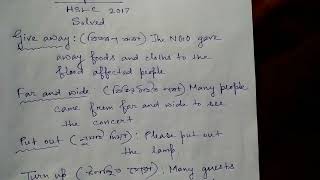 HSLC 2017
Solved
Give away: ( ) The NGO gave
away foods and cloths to the
flood affected people
Far and wide ( ) Many people
came from far and wide to see
the concert
Put out ( ): Please put out
the lamp
Turn up ( ). Many guests